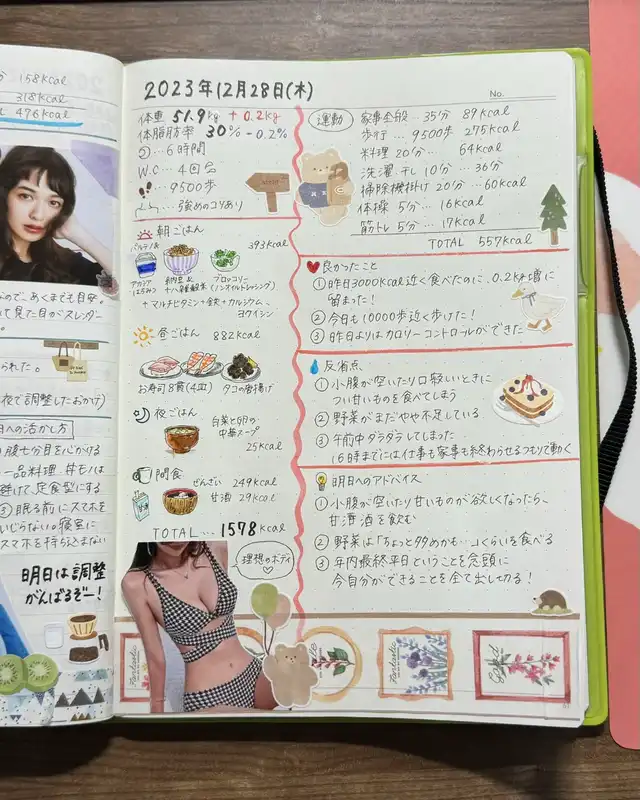 158kcal
318kcal
476kcal
夜で調整したおかげ)
一品料理、丼モノは
避けて、定食型にする
③ 眠る前にスマホを
いじらない。寝室に
スマホを持ち込まない
明日は調整
がんばるぞー!
2023年12月28日(木)
No.
体重 51.9kg +0.2kg
体脂肪率 30% -0.2%
…6時間
W.C…4回
…9500歩
…強めのコリあり
朝ごはん
393kcal
アカシア
はちみつ
納豆&
十八雑穀米
ブロッコリー
(ノンオイルドレッシング)
+マルチビタミン+鉄+カルシウム、
ヨクイシン
昼ごはん 882kcal
お寿司8貫(4皿)
タコの唐揚げ
夜ごはん
白菜と卵の
中華スープ
25kcal
間食
ぜんざい 249kcal
甘酒 29kcal
TOTAL…1578kcal
理想のボディ
運動
家事全般…35分 89kcal
歩行…9500歩 275kcal
料理20分… 64kcal
洗濯干し10分…36分
掃除機掛け20分…60kcal
体操5分…16kcal
筋トレ5分…17kcal
TOTAL 557kcal
良かったこと
①昨日3000kcal近く食べたのに、0.2kg増に
留まった!
②今日も10000歩近く歩けた!
③昨日よりはカロリーコントロールができた
反省点
①小腹が空いたり口寂しいときに
つい甘いものを食べてしまう
②野菜がまだやや不足している
③午前中ダラダラしてしまった
16時までには仕事も家事も終わらせるつもりで動く
明日へのアドバイス
①小腹が空いたり甘いものが欲しくなったら、
甘酒を飲む
②野菜は「ちょっと多めかも…」くらいを食べる
③年内最終平日ということを念頭に
今自分ができることを全て出し切る!
Fantastic
Fantastic
Good